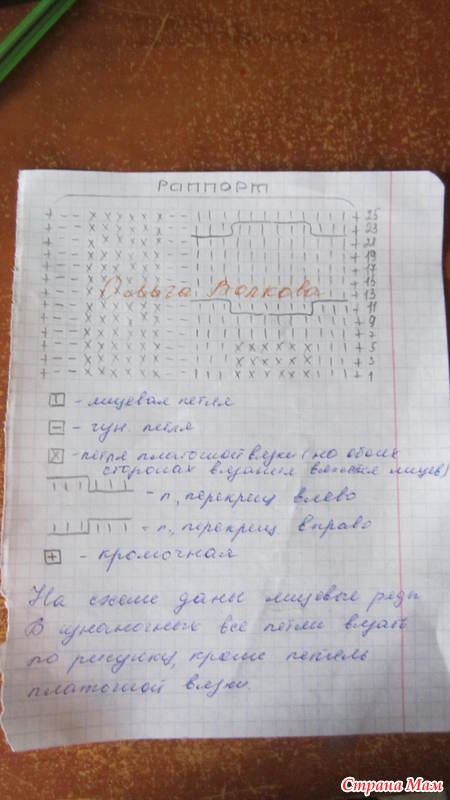 Раппорт
25
23
21
19
17
15
13
Ольга Волкова
11
9
7
5
3
1
I - лицевая петля
— - изн. петля
X - петля платочной вязки (на обоих
сторонах вязания вяжется лицев)
- п, перекрещ влево
- п, перекрещ вправо
+ - кромочная
На схеме даны лицевые ряды
В изнаночных все петли вязать
по рисунку, кроме петель
платочной вязки.
Страна Мам